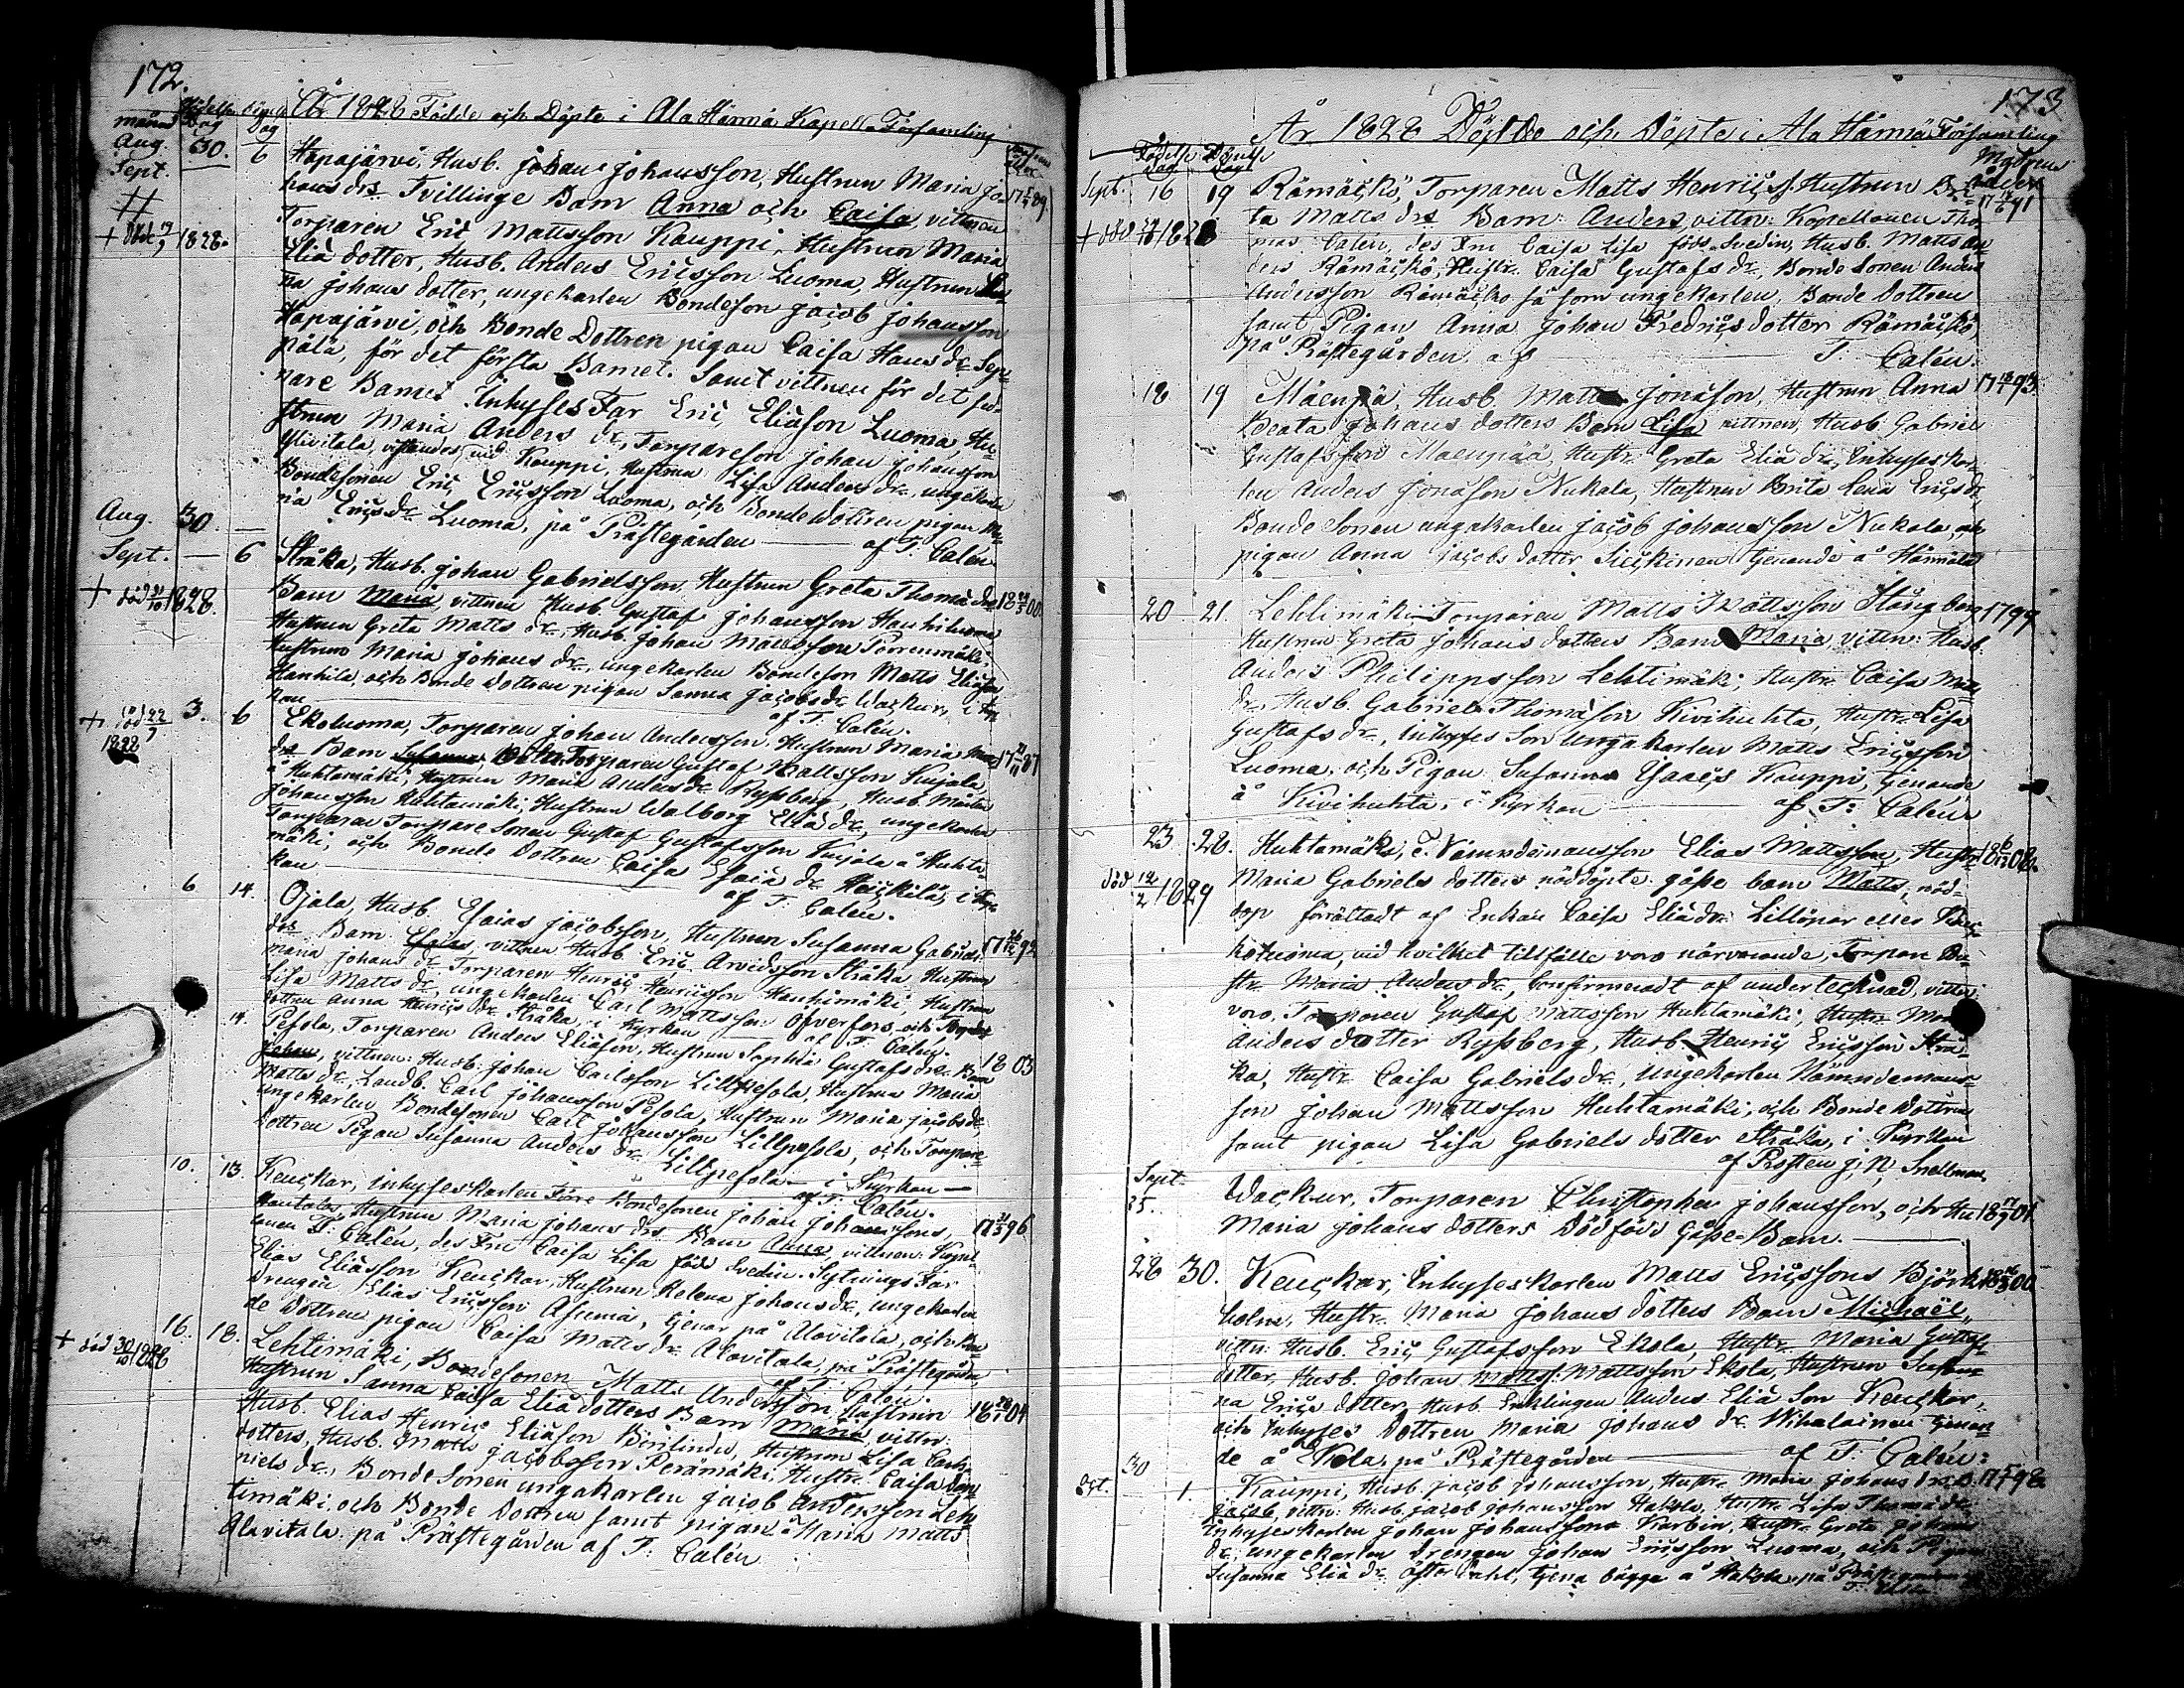 172.
År 1828 Födde och Döpte i Ala Härmä Kapell Församling
månad Födelse Dag Döpelse Dag
Aug. 30.
Sept. 6
Hapajärvi, Husb. Johan Johansson, Hustrun Maria Jo-
hans drs Tvillinge Barn Anna och Caisa, vittnen
Torparen Eric Mattsson Kauppi, Hustrun Maria
Eliä dotter, Husb. Anders Ericsson Luoma, Hustrun
na Johans dotter, ungekarlen Bondeson Jacob Johansson
Hapajärvi, och Bonde Dottren pigan Caisa Hans dr Sep-
pälä, för det första Barnet. Samt vittnen för det sed-
nare Barnet Inhyses Far Eric Eliäson Luoma, Hu-
strun Maria Anders dr, Torpareson Johan Johansson
Ylivitala, vistandes vid Kauppi, Hustrun Lisa Anders dr, ungekarlen
Bondesonen Eric Ericsson Luoma, och Bonde Dottren pigan Ma-
ria Erics dr Luoma, på Prästegården — af T: Calén.
Aug. 30. —
Sept. — 6
+ död 31/10 1828.
Stråka, Husb. Johan Gabrielsson, Hustrun Greta Thomä drs
Barn Maria, vittnen Husb. Gustaf Johansson Hanhiluoma
Hustrun Greta Matts dr, Husb. Johan Mattsson Porrenmäki,
Hustrun Maria Johans dr, ungekarlen Bondeson Matts Eliäson
Hanhila, och Bonde Dottren pigan Sanna Jacobs dr Wackur, i Kyr-
kan af T: Calén.
3. 6
Ekoluoma, Torparen Johan Andersson, Hustrun Maria
drs Barn Susanna, vittn. Torparen Gustaf Mattsson Kujala
å Huhtamäki, Hustrun Maria Anders dr Ryssberg, Husb. Mårten
Johansson Huhtamäki, Hustrun Walborg Eliä dr, ungekarlen
Torparen Torpare Sonen Gustaf Gustafsson Kujala å Huhta-
mäki, och Bonde Dottren Caisa Esaiä dr Häickilä, i Kyr-
kan af T: Calén.
6 14.
Ojala, Husb. Esaias Jacobsson, Hustrun Susanna Gabriels
drs Barn Esaias, vittnen Husb. Eric Arvidsson Stråka, Hustrun
Maria Johans dr, Torparen Henric Henricsson Hanhimäki, Hustrun
Lisa Matts dr, ungekarlen Carl Mattsson Öfverfors, och Torpare
dottren Anna Henrics dr Stråka, i Kyrkan — af T. Calén.
14.
Pesola, Torparen Anders Eliäson, Hustrun Sophia Gustafs drs Barn 18 03
Johan, vittnen: Husb. Johan Carlsson Lillpesola, Hustrun Maria
Matts dr, Landb. Carl Johansson Pesola, Hustrun Maria Jacobs dr,
ungekarlen Bondesonen Carl Johansson Lillpesola, och Torpare-
dottren Pigan Susanna Anders dr Lillpesola — i Kyrkan —
af T. Calén.
10. 13.
Keuckar, inhyseskarlen Förre Bondesonen Johan Johanssons,
Hautala, Hustrun Maria Johans drs Barn Anna, vittnen: Kapel-
lanen T: Calén, des Fru Caisa Lisa född Svedin. Sytnings Far
Elias Eliässon Keuckar, Hustrun Helena Johans dr, ungekarlen
Drengen Elias Ericsson Alsumä, tjenar på Alavitala, och Bon-
de Dottren pigan Caisa Matts dr Alavitala, på Prästegården
af T: Calén.
16. 18.
+ död 30/10 1828
Lehtimäki, Bondesonen Matts Andersson, Hustrun
Hustrun Sanna Caisa Eliä dotters Barn Maria, vittn:
Husb. Elias Henric Eliäson Birilindu, Hustrun Lisa Carls
dotters, Husb. Matts Jacobsson Perämäki, Hustr. Caisa Dan-
iels dr., Bonde Sonen ungakarlen Jacob Andersson Leh-
timäki och Bonde Dottren samt pigan Maria Matts
Alavitala på Prästegården af T: Calén
173
År 1828 Döptde och Döpte i Ala Härmä Församling
Födelse Dag Döpelse Dag
Modrens ålder
Sept. 16 19
Rämäckö, Torparen Matts Henrics. Hustrun Bri-
ta Matts drs Barn: Anders, vittn: Kapellanen Tho-
mas Calén, des Fru Caisa Lisa föds Svedin, Husb. Matts An-
ders Rämäckö, Hustr. Caisa Gustafs dr, Bonde Sonen Anders
Andersson Rämäcko så som ungekarlen, Bonde Dottren
samt Pigan Anna Johan Fredrics dotter Rämäckö,
på Prästegården af — T: Calén.
18 19
Mäenpä, Husb. Matts Jonäson, Hustrun Anna
Beata Johans dotters Barn Lisa vittnen, Husb Gabriel
Gustafsson Mäenpää, Hustr. Greta Eliä dr, Inhyseskar-
len Anders Jonäson Nukala, Hustrun Brita Lena Erics dr
Bonde Sonen ungakarlen Jacob Johansson Nukala, och
pigan Anna Jacobs dotter Sickinen tjenande å Härmälä
20. 21.
Lehtimäki Torparen Matts Mattsson Stångberg 1799
Hustrun Greta Johans dotters Barn Maria, vittn: Husb.
Anders Philippsson Lehtimäki, Hustr. Caisa Matts
dr, Husb. Gabriel Thomäson Kivihuhta, Hustr. Lisa
Gustafs dr., inhyses Son ungakarlen Matts Ericsson
Luoma, och Pigan Susanna Ysaacs Kauppi, tjenande
å Kivihuhta, i Kyrkan af T: Calén
23 28.
Huhtamäki, Nämndemansson Elias Mattsson, Hustr.
Maria Gabriels dotters nöddöpte gåsse barn Matts, nöd-
dop förrättadt af Enkan Caisa Eliä dr Lillönar eller
koluoma, vid hvilket tillfälle voro närvarande, Torpare Hu-
str. Maria Anders dr, Confirmeradt af undertecknad, vittn:
voro, Torparen Gustaf Mattsson Huhtamäki, Hustr. Maria
Anders dotter Ryssberg, Husb. Henric Ericsson Strå-
ka, Hustr. Caisa Gabriels dr, ungekarlen Nämndemans-
son Johan Mattsson Huhtamäki, och Bonde Dottren
samt pigan Lisa Gabriels dotter Stråka, i Kyrkan
af Prosten J: N: Snellman
Sept. 25.
Wackur, Torparen Christopher Johansson, och Hu
Maria Johans dotters Dödfödd Gåsse-Barn.
28 30.
Keuckar, Inhyseskarlen Matts Ericssons Björk-
holm, Hustr. Maria Johans Dotters Barn Michaël,
vittn: Husb. Eric Gustafsson Ekola, Hustr. Maria Gustafs
dotter, Husb. Johan Matts. Mattsson Ekola, Hustrun Susan-
na Erics dotter, Husb. Enklingen Anders Eliä Son Keuckar,
och Inhyses Dottren Maria Johans dr. Wihalainen tjenan-
de å Ekola, på Prästegården — af T: Calén:
30
Oct. 1.
Kauppi, Husb. Jacob Johansson, Hustr. Maria Johans drs B.
Jacob, vittn: Husb. Jacob Johansson Hakola, Hustr. Lisa Thomä dr
Inhyseskarlen Johan Johansson Karbin, Hustr. Greta Johans
dr, ungekarlen Drengen Johan Ericsson Luoma, och Pigan
Susanna Eliä dr Österdahl, tjena bägge å Hakola, på Prästegården